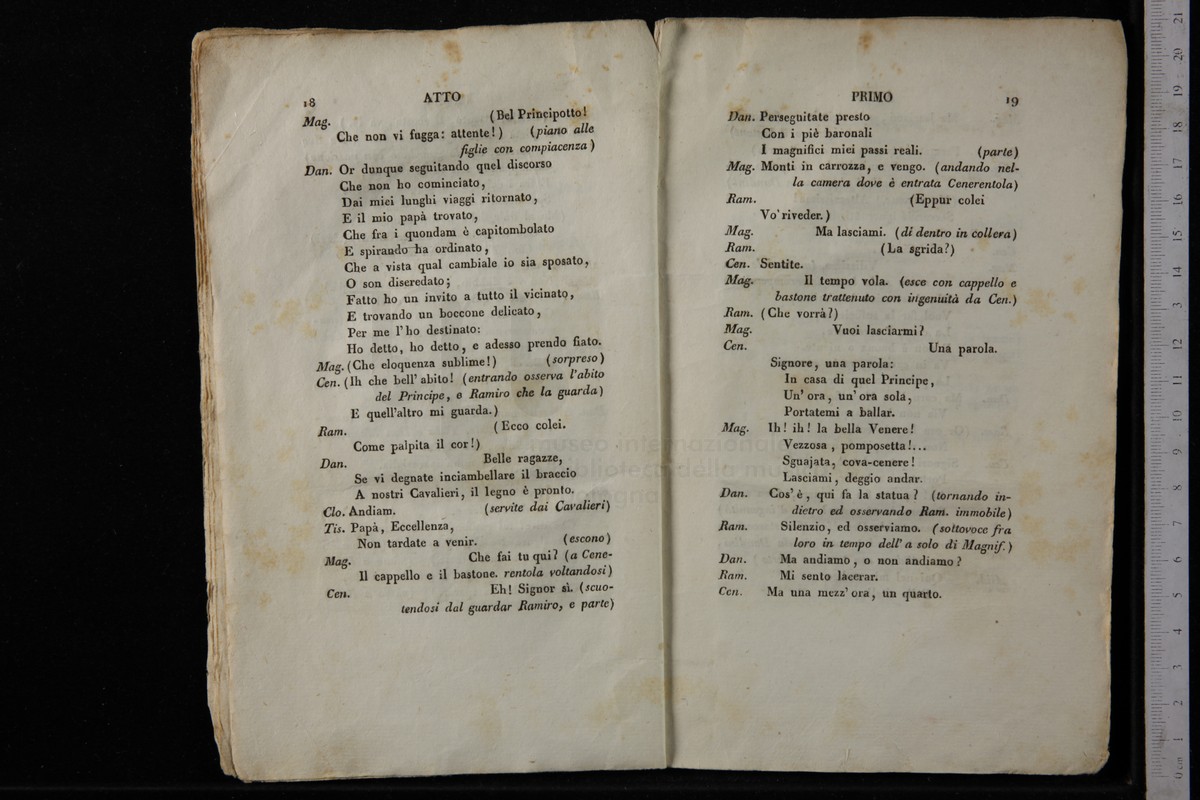 18
ATTO
Mag. (Bel Principotto!
Che non vi fugga: attente!) (piano alle
figlie con compiacenza)
Dan. Or dunque seguitando quel discorso
Che non ho cominciato,
Dai miei lunghi viaggi ritornato,
E il mio papà trovato,
Che fra i quondam è capitombolato
E spirando ha ordinato,
Che a vista qual cambiale io sia sposato,
O son diseredato;
Fatto ho un invito a tutto il vicinato,
E trovando un boccone delicato,
Per me l'ho destinato:
Ho detto, ho detto, e adesso prendo fiato.
Mag. (Che eloquenza sublime!) (sorpreso)
Cen. (Ih che bell' abito! (entrando osserva l'abito
del Principe, e Ramiro che la guarda)
E quell'altro mi guarda.)
Ram. (Ecco colei.
Come palpita il cor!)
Dan. Belle ragazze,
Se vi degnate inciambellare il braccio
A nostri Cavalieri, il legno è pronto.
Clo. Andiam. (servite dai Cavalieri)
Tis. Papà, Eccellenza,
Non tardate a venir. (escono)
Mag. Che fai tu qui? (a Cene-
Il cappello e il bastone. rentola voltandosi)
Cen. Eh! Signor sì. (scuo-
tendosi dal guardar Ramiro, e parte)
PRIMO
19
Dan. Perseguitate presto
Con i piè baronali
I magnifici miei passi reali. (parte)
Mag. Monti in carrozza, e vengo. (andando nel-
la camera dove è entrata Cenerentola)
Ram. (Eppur colei
Vo' riveder.)
Mag. Ma lasciami. (di dentro in collera)
Ram. (La sgrida?)
Cen. Sentite.
Mag. Il tempo vola. (esce con cappello e
bastone trattenuto con ingenuità da Cen.)
Ram. (Che vorrà?)
Mag. Vuoi lasciarmi?
Cen. Una parola.
Signore, una parola:
In casa di quel Principe,
Un' ora, un' ora sola,
Portatemi a ballar.
Mag. Ih! ih! la bella Venere!
Vezzosa, pomposetta!...
Sguajata, cova-cenere!
Lasciami, deggio andar.
Dan. Cos' è, qui fa la statua? (tornando in-
dietro ed osservando Ram. immobile)
Ram. Silenzio, ed osserviamo. (sottovoce fra
loro in tempo dell' a solo di Magnif.)
Dan. Ma andiamo, o non andiamo?
Ram. Mi sento lacerar.
Cen. Ma una mezz' ora, un quarto.
museo internazionale
biblioteca della mu